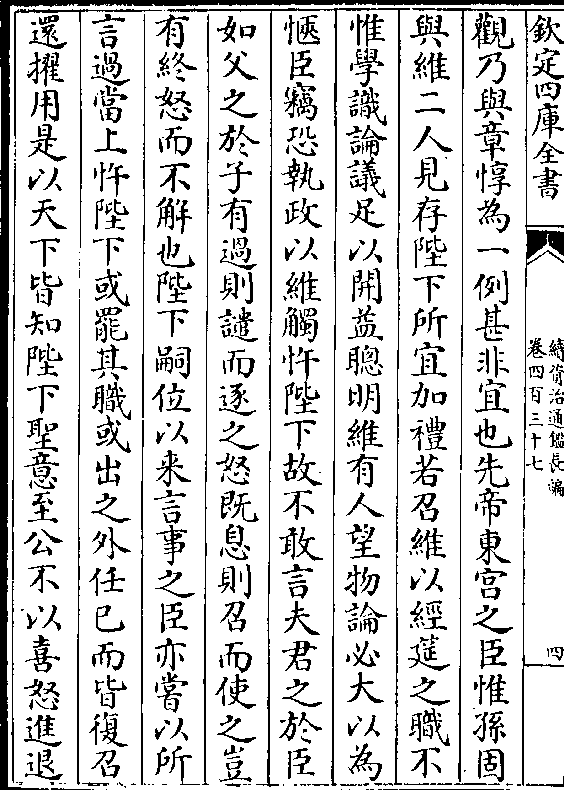 欽定四庫全書
續資治通鑑長編
卷四百三十七
四
觀乃與章惇為一例甚非宜也先帝東宮之臣惟孫固
與維二人見存陛下所宜加禮若召維以經筵之職不
惟學識論議足以開益聰明維有人望物論必大以為
愜臣竊恐執政以維觸忤陛下故不敢言夫君之於臣
如父之於子有過則譴而逐之怒既息則召而使之豈
有終怒而不解也陛下嗣位以来言事之臣亦嘗以所
言過當上忤陛下或罷其職或出之外任已而皆復召
還擢用是以天下皆知陛下聖意至公不以喜怒進退